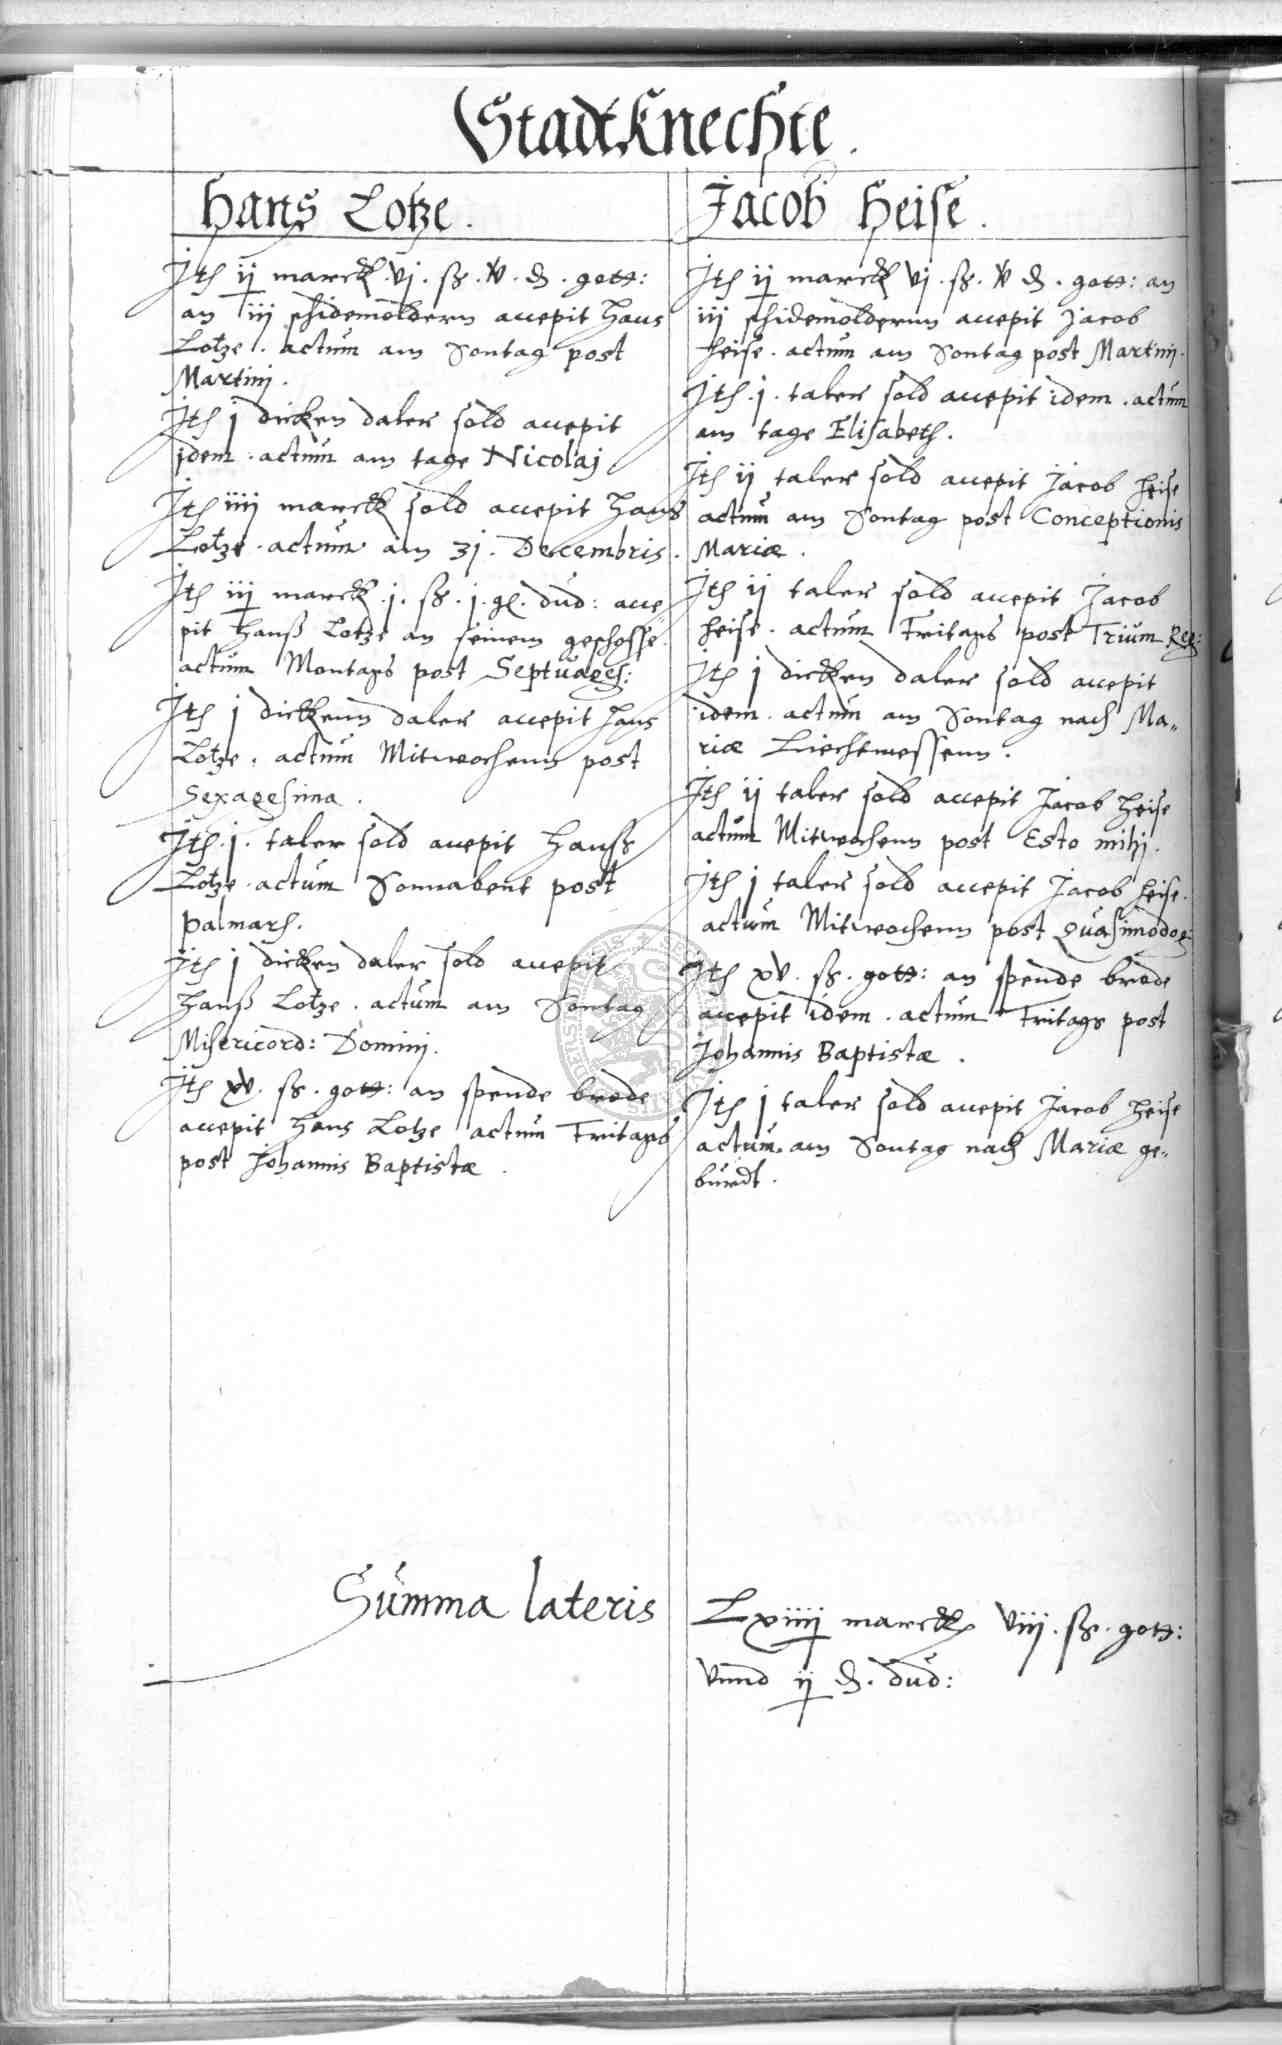 Stadtknechte.
Hans Lotze.
Jtem ij marck . vj . ß . v . ₰ . gott:
an iij schidemoldern accepit Hans
Lotze . actum am Sontag post
Martinj.
Jtem j dicken daler sold accepit
jdem . actum am tage Nicolaj
Jtem iiij marck sold accepit Hans
Lotze . actum am 31. Decembris.
Jtem iij marck . j . ß . j . dud: acce
pit Hanß Lotze an seinem geschosse
actum Montags post Septuages:
Jtem j dickenn daler accepit Hans
Lotze . actum Mitwochenn post
Sexagesima.
Jtem . j . taler sold accepit Hanß
Lotze . actum Sonnabent post
Palmarum.
Jtem j dicken daler sold accepit
Hanß Lotze . actum am Sontag
Misericord: Dominj.
Jtem xv . ß . gott: an spende brode
accepit Hans Lotze actum Fritags
post Johannis Baptistæ.
Jacob Heise.
Jtem ij marck vj . ß . v ₰ . gott: an
iij schidemoldernn accepit Jacob
Heise . actum am Sontag post Martinj.
Jtem . j . taler sold accepit idem . actum
am tage Elisabeth.
Jtem ij taler sold accepit Jacob Heise
actum am Sontag post Conceptionis
Mariæ.
Jtem ij taler sold accepit Jacob
Heise . actum Fritags post Trium Reg:
Jtem j dicken daler sold accepit
idem . actum am Sontag nach Ma„
riæ Liechtmessenn.
Jtem ij taler sold accepit Jacob Heise
actum Mitwochenn post Esto mihj.
Jtem j taler sold accepit Jacob Heise.
actum Mitwochenn post Quasimodog:
Jtem xv . ß . gott: an spende brode
accepit idem . actum Fritags post
Johannis Baptistæ.
Jtem j taler sold accepit Jacob Heise
actum am Sontag nach Mariæ ge„
burdt.
Summa lateris
Lxiiij marck viij . ß . gott:
vnnd ij ₰ . dud: